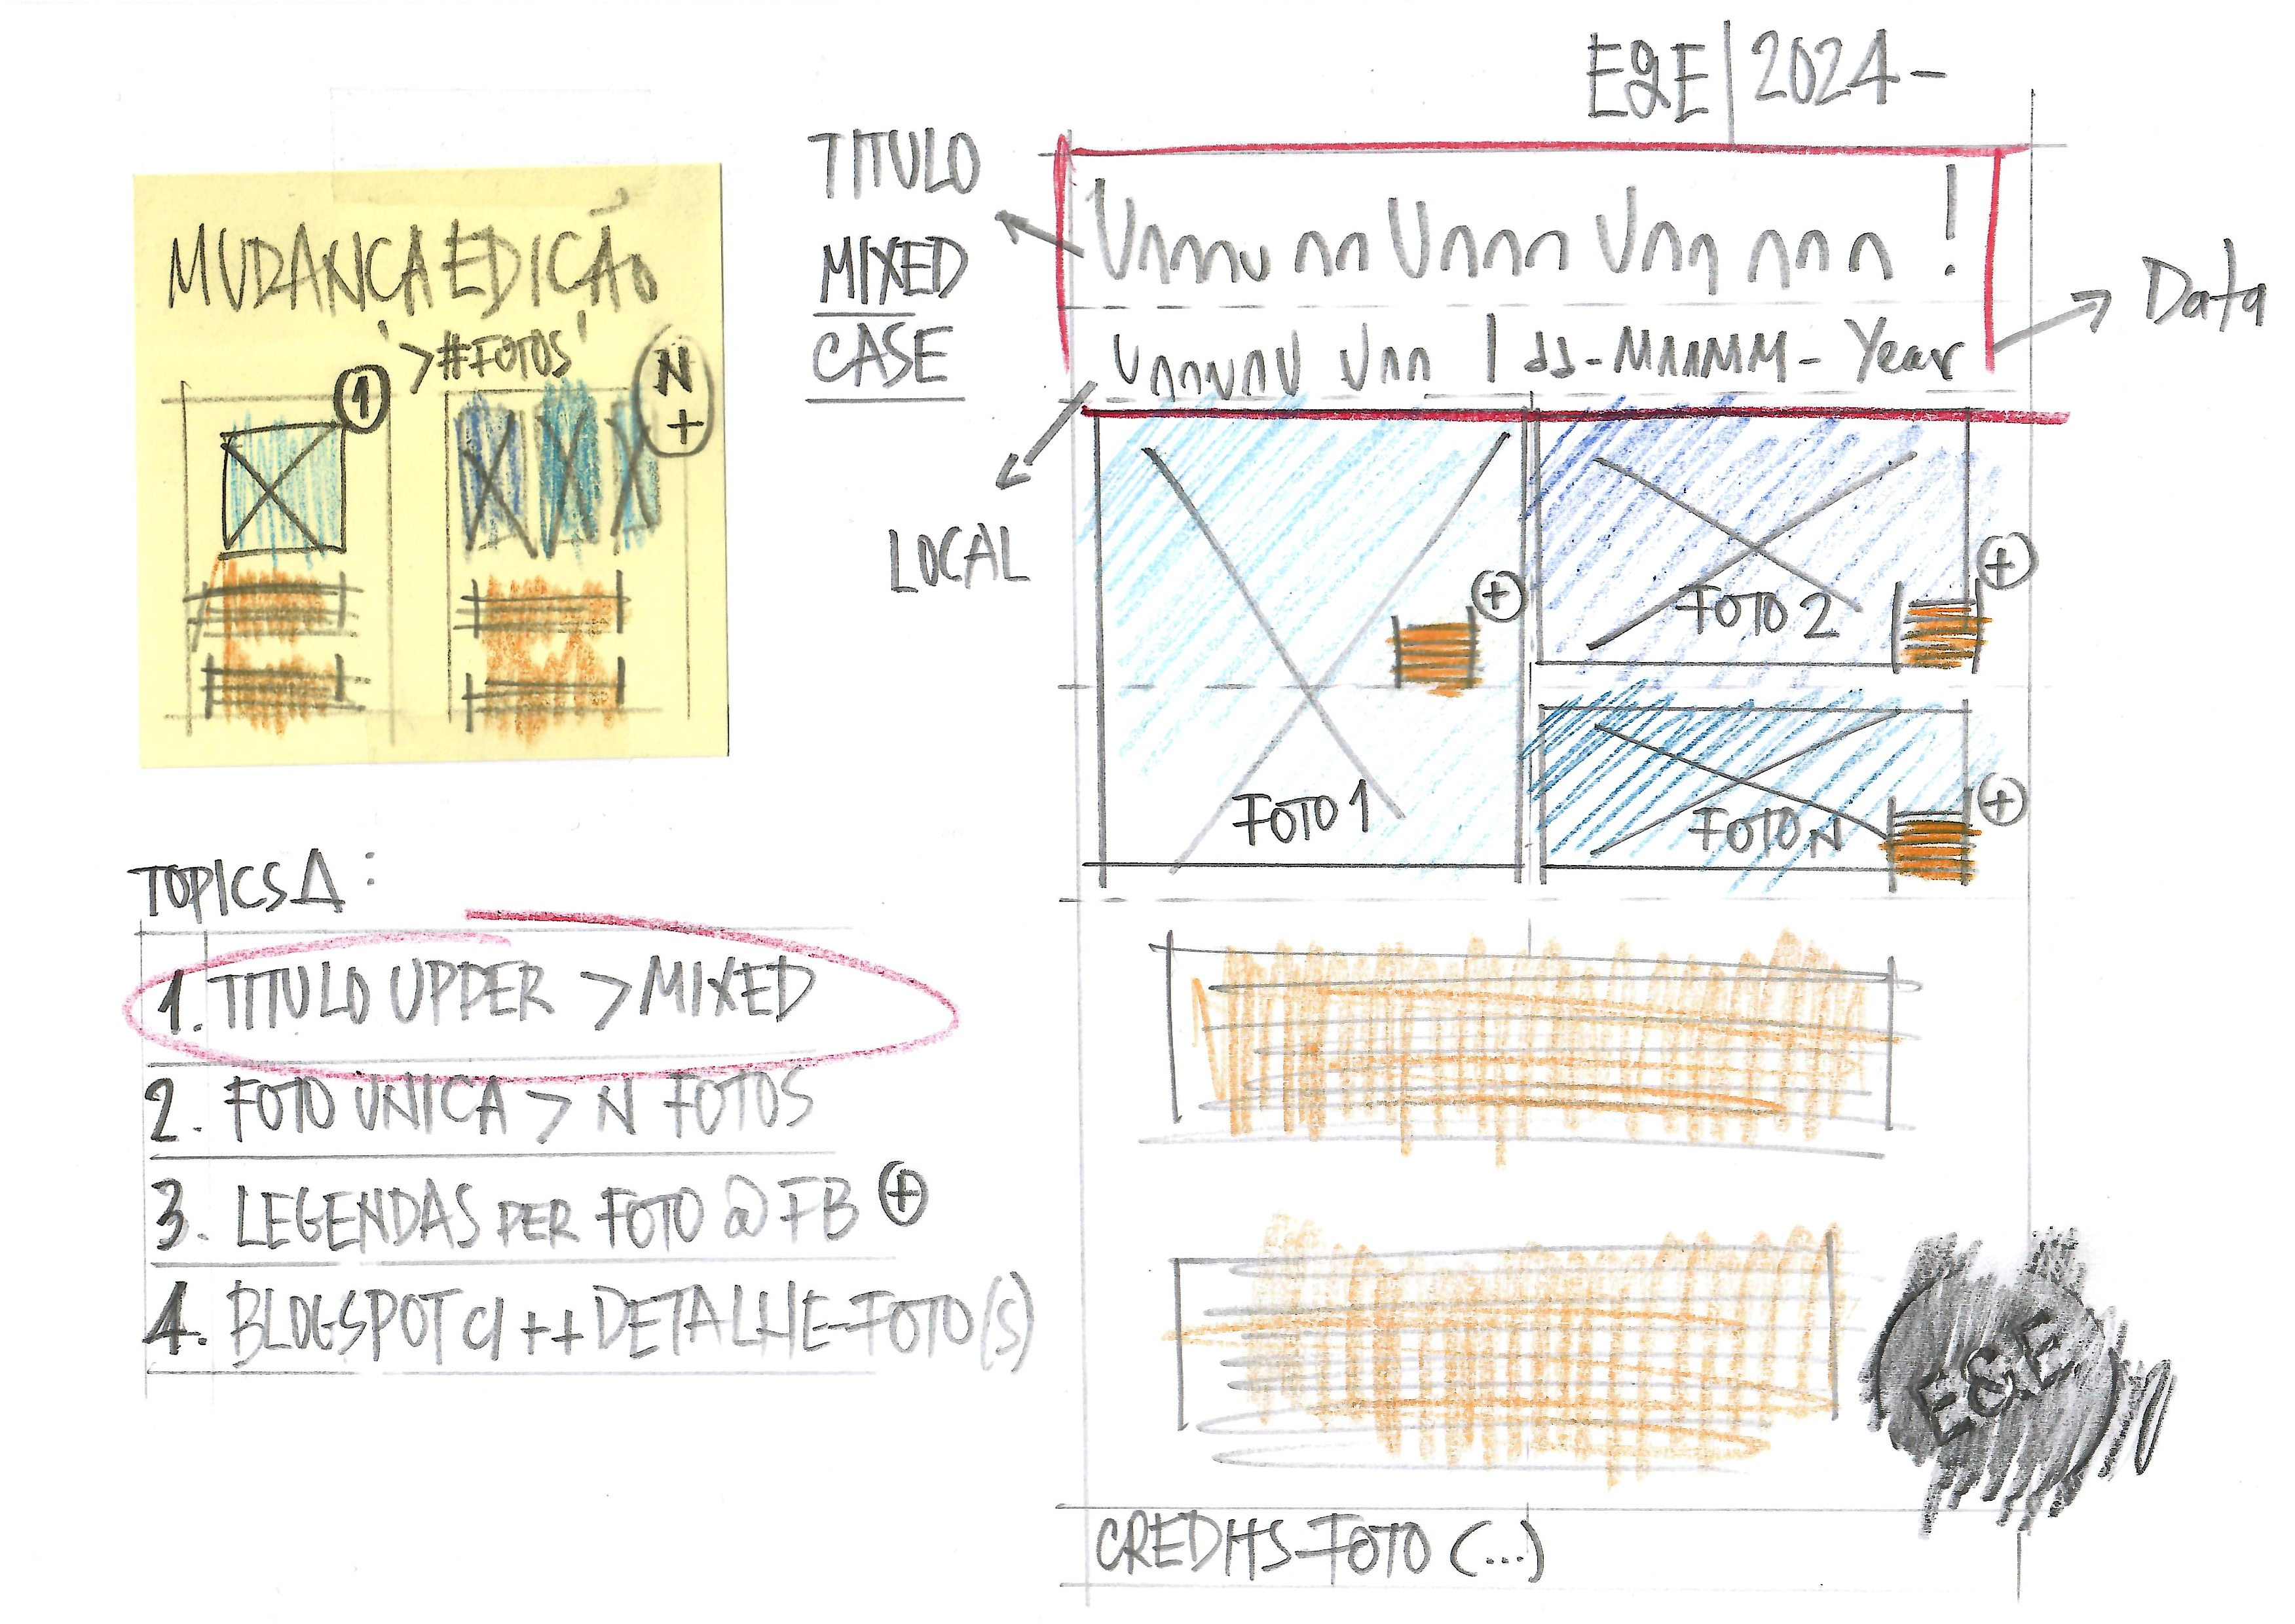 MUDANÇA EDIÇÃO
'>#FOTOS'
1
N
+
TOPICS Δ:
1. TITULO UPPER > MIXED
2. FOTO UNICA > N FOTOS
3. LEGENDAS PER FOTO @ FB +
4. BLOGSPOT c/ ++ DETALHE-FOTO(S)
E&E | 2024-
TITULO
MIXED
CASE
!
| dd-MMMMM-Year
Data
LOCAL
FOTO 1
+
FOTO 2
+
FOTO N
+
E&E
CREDITS-FOTO (...)